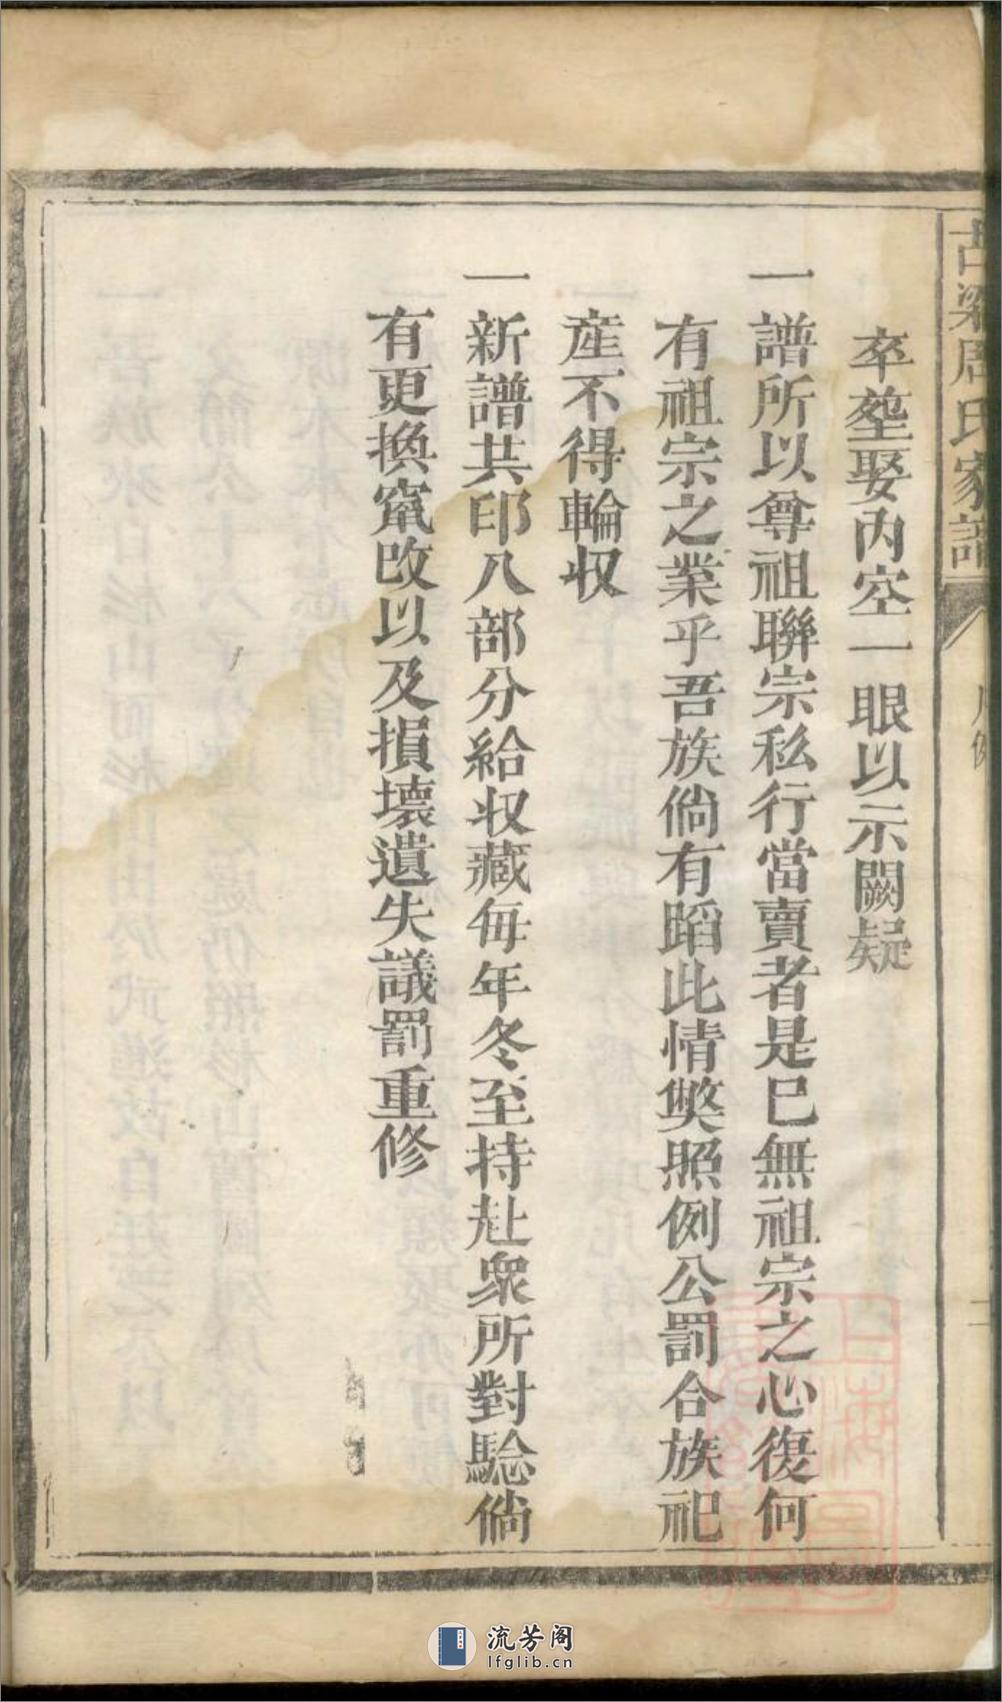 古梁周氏家譜
凡例
二
卒塟娶内空一眼以示闕疑
一譜所以尊祖聯宗私行當賣者是已無祖宗之心復何
有祖宗之業乎吾族倘有蹈此情獘照例公罰合族祀
産不得輪収
一新譜共印八部分給収藏毎年冬至持赴衆所對騐倘
有更換竄改以及損壞遺失議罰重修
流芳阁
lfglib.cn